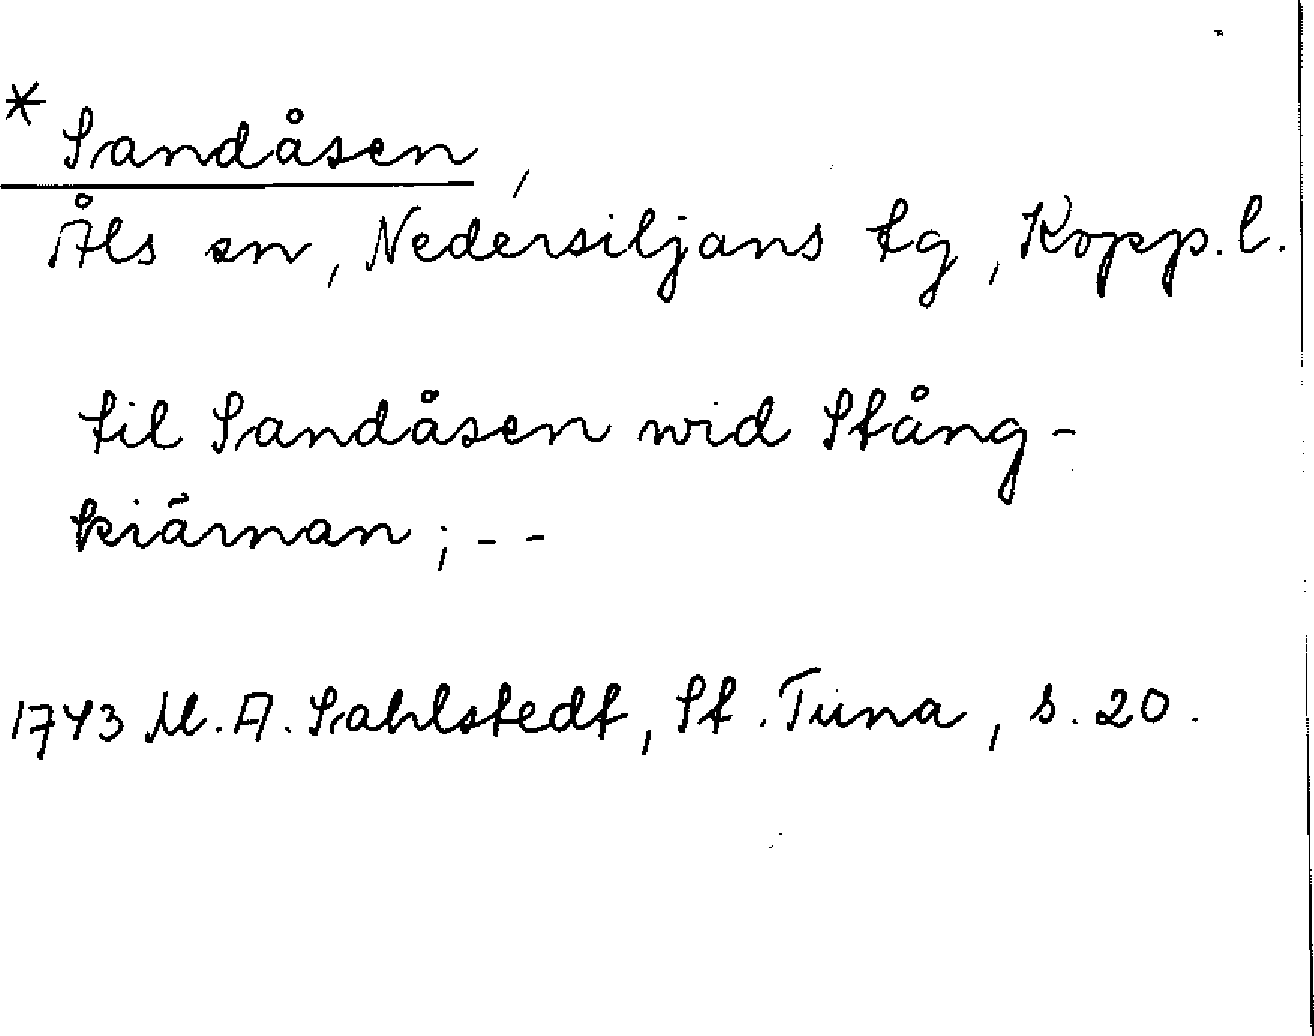 * Sandåsen,
Åls sn, Nedersiljans tg, Kopp. l.
til Sandåsen wid Stång-
kiärnan; - -
1743 M. A. Sahlstedt, St. Tuna, s. 20.